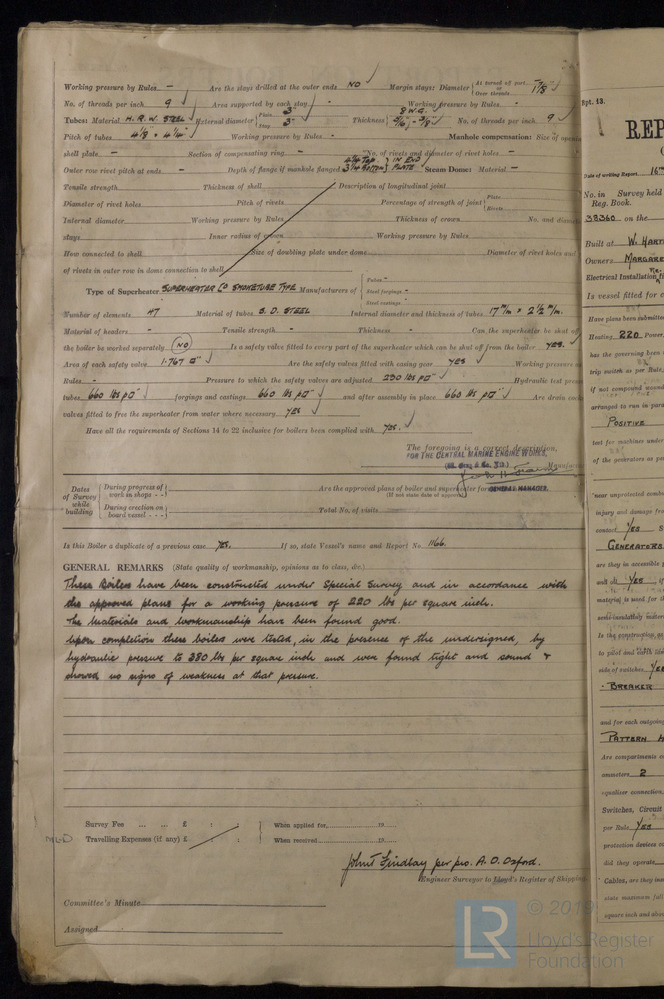 Working pressure by Rules - Are the stays drilled at the outer ends NO Margin stays: Diameter { At turned off part, or Over threads 1 7/8"
No. of threads per inch 9 Area supported by each stay - Working pressure by Rules -
Tubes: Material H.R.W. STEEL External diameter { Plain 3" Stay 3" Thickness { 8 W.G. 5/16" - 3/8" No. of threads per inch 9
Pitch of tubes 4 1/8 × 4 1/4" Working pressure by Rules - Manhole compensation: Size of
shell plate - Section of compensating ring - No. of rivets and diameter of rivet holes -
Outer row rivet pitch at ends - Depth of flange if manhole flanged 4 1/4 TOP 3 1/4 BOTTOM } IN END PLATE Steam Dome: Material -
Tensile strength Thickness of shell Description of longitudinal joint
Diameter of rivet holes Pitch of rivets Percentage of strength of joint { Plate Rivets
Internal diameter Working pressure by Rules Thickness of crown No. and
stays Inner radius of crown Working pressure by Rules
How connected to shell Size of doubling plate under dome Diameter of rivet holes and
of rivets in outer row in dome connection to shell
Type of Superheater SUPERHEATER Co SMOKETUBE TYPE Manufacturers of { Tubes - Steel forgings - Steel castings -
Number of elements 47 Material of tubes S. D. STEEL Internal diameter and thickness of tubes 17 m/m × 2 1/2 m/m.
Material of headers - Tensile strength - Thickness - Can the superheater be shut off
the boiler be worked separately NO Is a safety valve fitted to every part of the superheater which can be shut off from the boiler YES.
Area of each safety valve 1.767 □" Are the safety valves fitted with easing gear YES Working pressure
Rules - Pressure to which the safety valves are adjusted 230 lbs p□" Hydraulic test
tubes 660 lbs p□" forgings and castings 660 lbs p□" and after assembly in place 440 lbs p□" Are drain
valves fitted to free the superheater from water where necessary YES
Have all the requirements of Sections 14 to 22 inclusive for boilers been complied with YES.
The foregoing is a correct description,
FOR THE CENTRAL MARINE ENGINE WORKS,
(Wm. Gray & Co. Ltd.)
GENERAL MANAGER.
Dates of Survey while building { During progress of work in shops - - During erection on board vessel - - - Are the approved plans of boiler and superheater
(If not state date of approval)
Total No. of visits
Is this Boiler a duplicate of a previous case Yes. If so, state Vessel's name and Report No. 1166.
GENERAL REMARKS (State quality of workmanship, opinions as to class, &c.)
These Boilers have been constructed under Special Survey and in accordance with
the approved plans for a working pressure of 220 lbs per square inch.
The materials and workmanship have been found good.
Upon completion these boilers were tested, in the presence of the undersigned, by
hydraulic pressure to 380 lbs per square inch and were found tight and sound &
showed no signs of weakness at that pressure.
Survey Fee ... ... £ : : When applied for, 19
Travelling Expenses (if any) £ : : When received, 19
John T Findlay per pro. A. O. Oxford.
Engineer Surveyor to Lloyd's Register of Shipping
Committee's Minute
Assigned
Rpt. 13.
REP
Date of writing Report 16th
No. in Survey held
Reg. Book.
38360 on the
Built at W. HART
Owners MARGARE
Electrical Installation
Is vessel fitted for
Have plans been submitted
Heating 220 Power
has the governing been
trip switch as per Rule
if not compound wound
arranged to run in
POSITIVE
test for machines under
of the generators as per
near unprotected
injury and damage
contact Yes
GENERATORS
are they in accessible
Yes
material is used for
Is the construction
side of switches Yes
- BREAKER
and for each outgoing
PATTERN
Are compartments
ammeters 2
equaliser connection
Switches, Circuit
per Rule Yes
protection devices
did they operate
Cables, are they
state maximum fall
square inch and
LR
© 2019
Lloyd's Register
Foundation